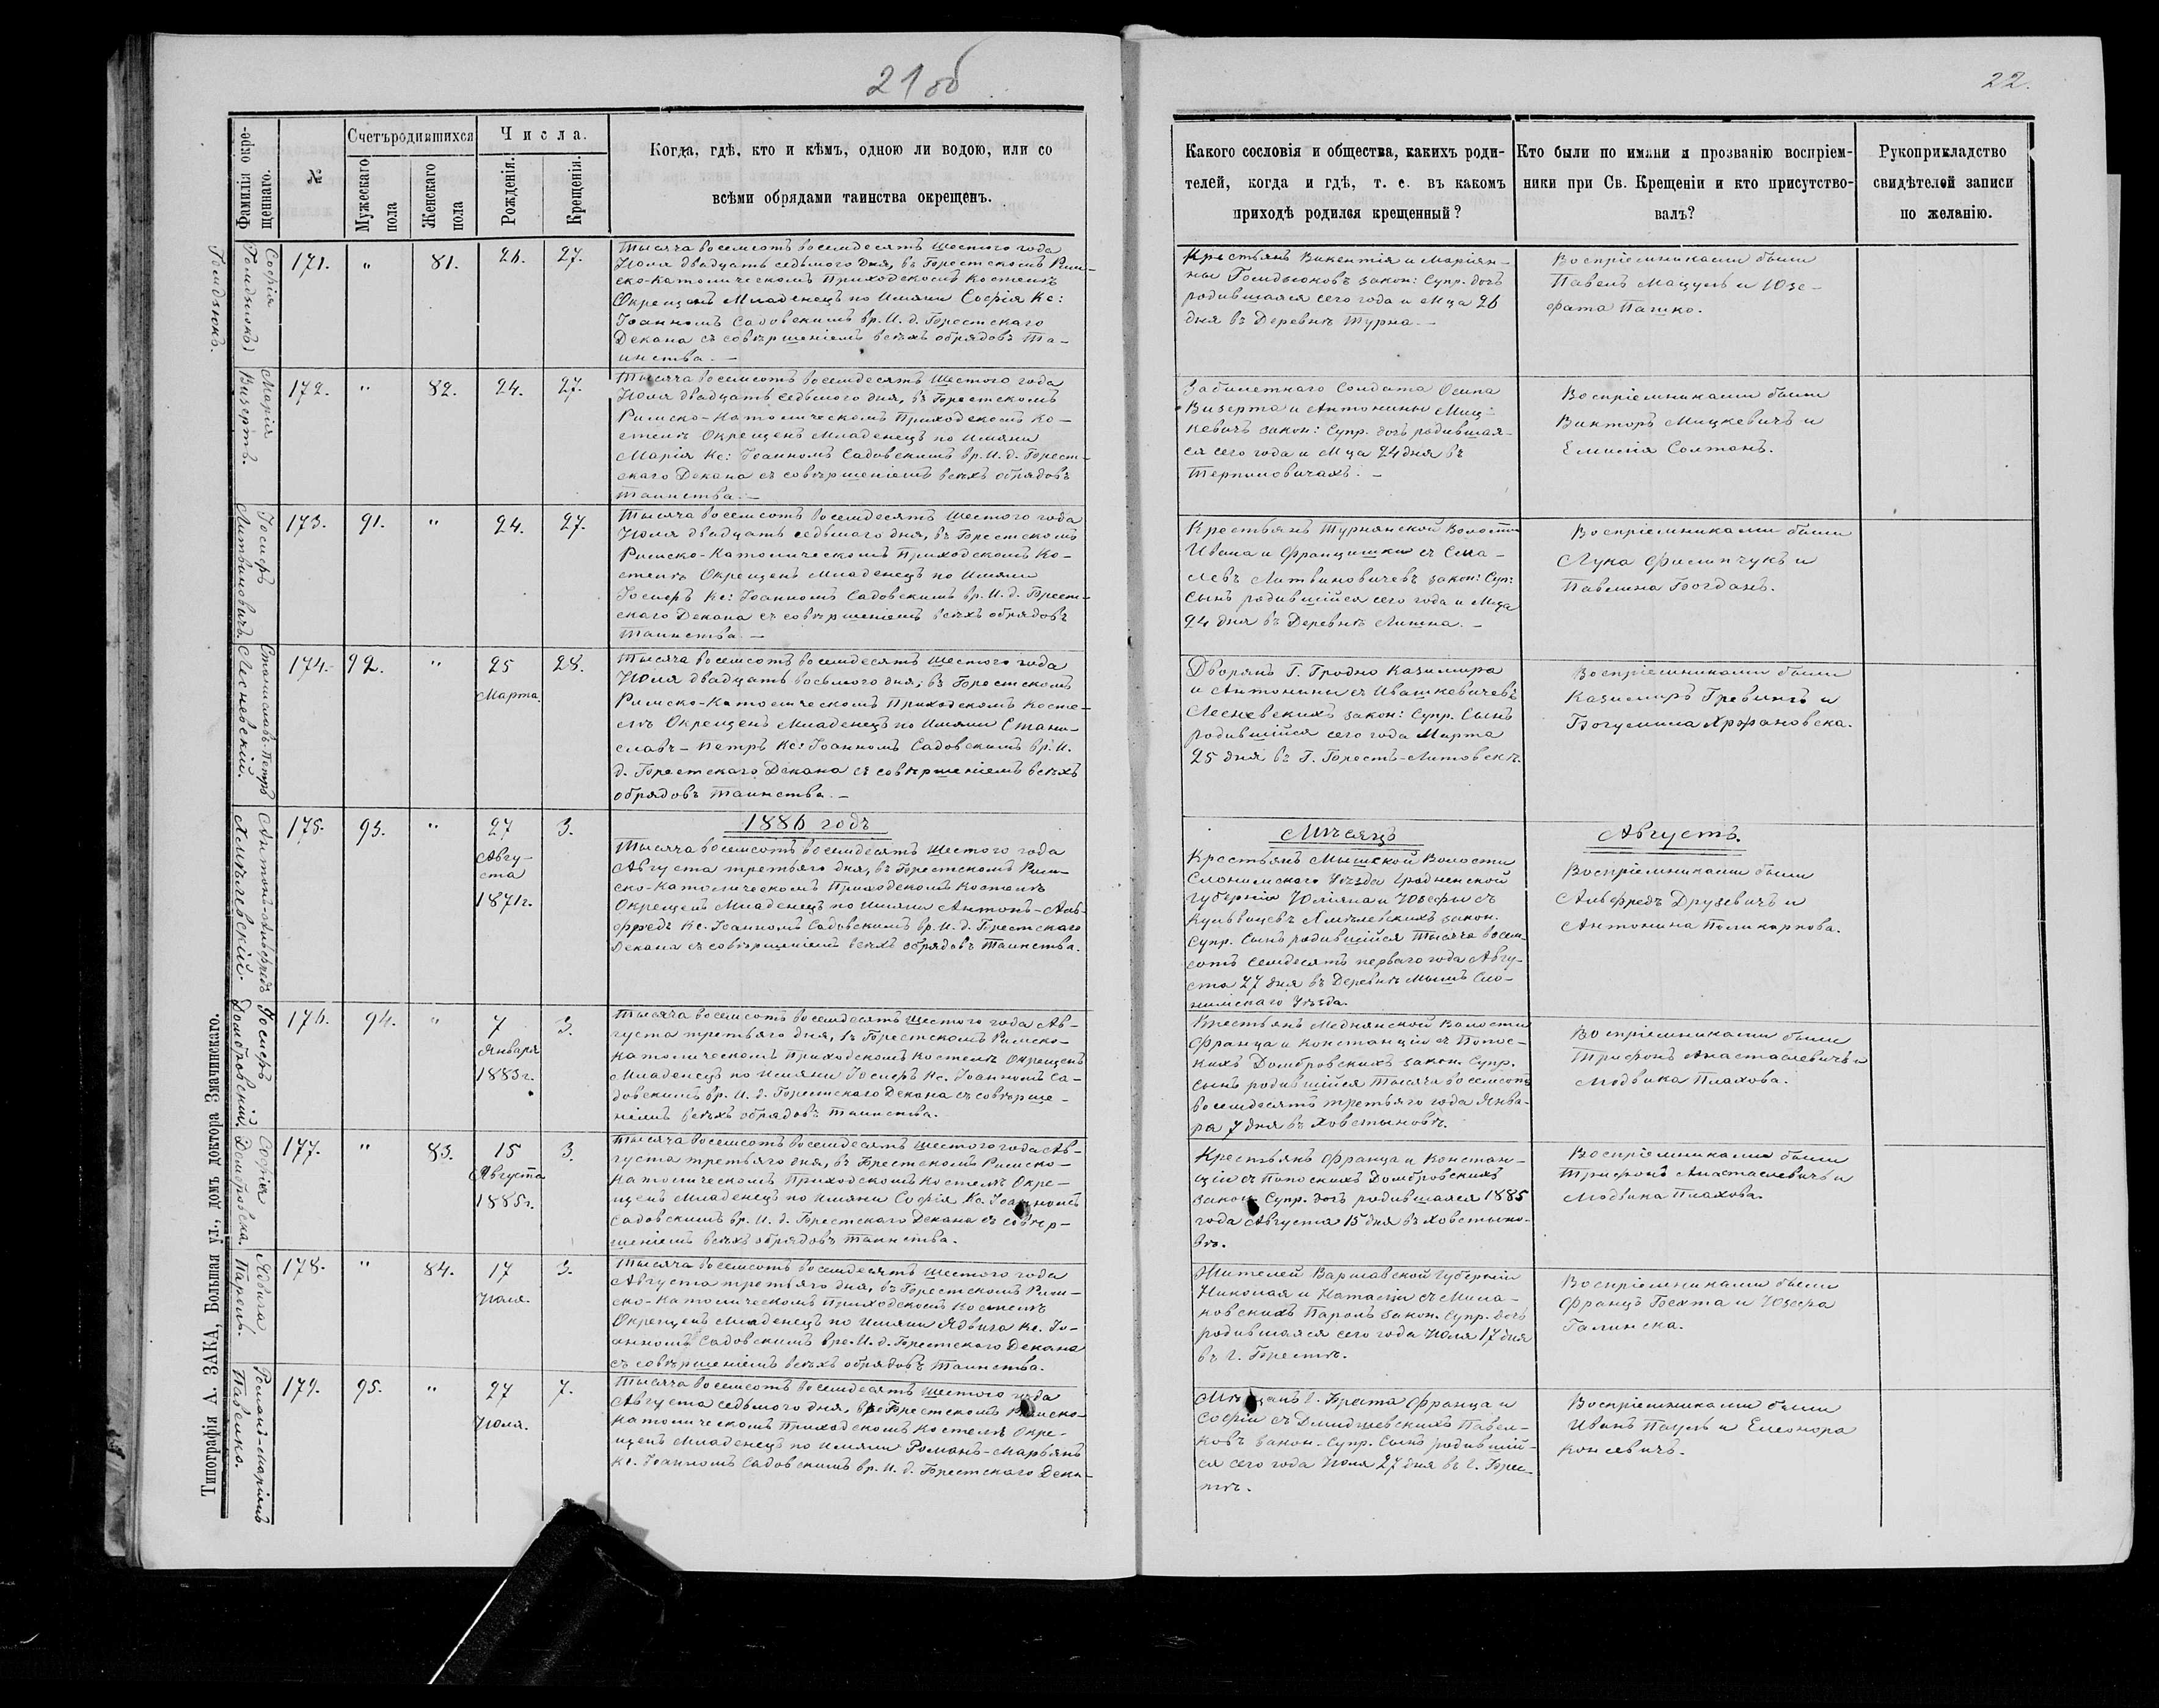 21 об
22.
Фамилія окре-
щеннаго.
№
Счетъ родившихся
Мужескаго
пола
Женскаго
пола
Числа.
Рожденія.
Крещенія.
Когда, гдѣ, кто и кѣмъ, одною ли водою, или со
всѣми обрядами таинства окрещенъ.
Какого сословія и общества, какихъ роди-
телей, когда и гдѣ, т. е. въ какомъ
приходѣ родился крещенный?
Кто были по имяни и прозванію воспріем-
ники при Св. Крещеніи и кто присутство-
валъ?
Рукоприкладство
свидѣтелей записи
по желанію.
Софія
171.
"
81.
26.
27.
Тысяча восемсотъ восемдесятъ шестого года
Юля двадцать седьмого дня, въ Брестскомъ Рим-
ско-Католическомъ Приходскомъ Костелѣ
Окрещенъ Младенецъ по Имяни Софія Кс:
Іоанномъ Садовскимъ вр. И. д. Брестскаго
Декана съ совѣршеніемъ всѣхъ обрядовъ Та-
инства. —
Крестьянъ Викентія и Маріян-
ны Гомдзюковъ закон: Супр. дочь
родившаяся сего года и Мца 26
дня въ Деревнѣ Турна. —
Воспріемниками были
Павелъ Мацуль и Юзе-
фата Пашко.
Марія
Визертъ.
172.
"
82.
24.
27.
Тысяча восемсотъ восемдесятъ шестого года
Юля двадцать седьмого дня, въ Брестскомъ
Римско-Католическомъ Приходскомъ Ко-
стелѣ Окрещенъ Младенецъ по Имяни
Марія Кс: Іоанномъ Садовскимъ вр. И. д. Брест-
скаго Декана съ совѣршеніемъ всѣхъ обрядовъ
Таинства. —
Забилетнаго Солдата Осипа
Визерта и Антонины Миц-
кевичъ закон: Супр. дочь родившая-
ся сего года и Мца 24 дня въ
Терпиловичахъ. —
Воспріемниками были
Викторъ Мицкевичъ и
Емилія Солтанъ.
Іосифъ
Литвиновичъ
173.
91.
"
24.
27.
Тысяча восемсотъ восемдесятъ шестого года
Юля двадцать седьмого дня, въ Брестскомъ
Римско-Католическомъ Приходскомъ Ко-
стелѣ Окрещенъ Младенецъ по Имяни
Іосифъ Кс: Іоанномъ Садовскимъ вр. И. д. Брест-
скаго Декана съ совѣршеніемъ всѣхъ обрядовъ
Таинства. —
Крестьянъ Турнянской Волости
Ивана и Францишки съ Сма-
левъ Литвиновичевъ закон: Суп:
Сынъ родившійся сего года и Мца
24 дня въ Деревнѣ Лишна. —
Воспріемниками были
Лука Филипчукъ и
Павлина Богданъ.
Станиславъ-Петръ
Лесневскій.
174.
92.
"
25
Марта.
28.
Тысяча восемсотъ восемдесятъ шестого года
Юля двадцать восьмого дня, въ Брестскомъ
Римско-Католическомъ Приходскомъ Косте-
лѣ Окрещенъ Младенецъ по Имяни Стани-
славъ-Петръ Кс: Іоанномъ Садовскимъ вр. И.
д. Брестскаго Декана съ совѣршеніемъ всѣхъ
обрядовъ Таинства. —
Дворянъ Г. Гродно Казимира
и Антонины съ Ивашкевичевъ
Лесневскихъ закон: Супр. Сынъ
родившійся сего года Марта
25 дня въ Г. Брестъ-Литовскѣ.
Воспріемниками были
Казимиръ Гревингъ и
Богумила Хржановска.
Антонъ-Альфредъ
Хмѣлевскій.
175.
93.
"
27
Авгу-
ста
1871 г.
3.
1886 годъ
Тысяча восемсотъ восемдесятъ шестого года
Августа третьяго дня, въ Брестскомъ Рим-
ско-Католическомъ Приходскомъ Костелѣ
Окрещенъ Младенецъ по Имяни Антонъ-Аль-
фредъ Кс. Іоанномъ Садовскимъ вр. И. д. Брестскаго
Декана съ совѣршеніемъ всѣхъ обрядовъ Таинства.
Мѣсяцъ
Крестьянъ Мышской Волости
Слонимскаго Уѣзда Гродненской
Губерніи Юліяна и Юзефы съ
Кульвицевъ Хмѣлевскихъ закон.
Супр. Сынъ родившійся Тысяча восем-
сотъ Семдесятъ перваго года Авгу-
ста 27 дня въ Деревнѣ Мышъ Сло-
нимскаго Уѣзда.
Августъ.
Воспріемниками были
Альфредъ Друзевичъ и
Антонина Поликарпова.
Іосифъ
Домбровскій.
176.
94.
"
7
Января
1883 г.
3.
Тысяча восемсотъ восемдесятъ шестого года Ав-
густа третьяго дня, въ Брестскомъ Римско-
Католическомъ Приходскомъ Костелѣ Окрещенъ
Младенецъ по Имяни Іосифъ Кс. Іоанномъ Са-
довскимъ вр. И. д. Брестскаго Декана съ совѣрше-
ніемъ всѣхъ обрядовъ Таинства.
Крестьянъ Меднянской Волости
Франца и Констанціи съ Попос-
кихъ Домбровскихъ закон. Супр.
Сынъ родившійся Тысяча восемсотъ
восемдесятъ третьяго года Янва-
ря 7 дня въ Ховстыновѣ.
Воспріемниками были
Трифонъ Анастасевичъ и
Людвика Плахова.
Софія
Домбровска.
177.
"
83.
15
Августа
1885 г.
3.
Тысяча восемсотъ восемдесятъ шестого года Ав-
густа третьяго дня, въ Брестскомъ Римско-
Католическомъ Приходскомъ Костелѣ Окре-
щенъ Младенецъ по Имяни Софія Кс. Іоанномъ
Садовскимъ вр. И. д. Брестскаго Декана съ совѣр-
шеніемъ всѣхъ обрядовъ Таинства.
Крестьянъ Франца и Констан-
ціи съ Попоскихъ Домбровскихъ
закон. Супр. дочь родившаяся 1885
года Августа 15 дня въ Ховстыно-
вѣ.
Воспріемниками были
Трифонъ Анастасевичъ и
Людвика Плахова.
Ядвига
Пароль.
178.
"
84.
17
Юля.
3.
Тысяча восемсотъ восемдесятъ шестого года
Августа третьяго дня, въ Брестскомъ Рим-
ско-Католическомъ Приходскомъ Костелѣ
Окрещенъ Младенецъ по Имяни Ядвига Кс. Іо-
анномъ Садовскимъ вр. И. д. Брестского Декана
съ совѣршеніемъ всѣхъ обрядовъ Таинства.
Жителей Варшавской Губерніи
Николая и Наталіи съ Мила-
новскихъ Пароль закон. Супр. дочь
родившаяся сего года Юля 17 дня
въ г. Брестѣ.
Воспріемниками были
Францъ Бехта и Юзефа
Галинска.
Романъ-Маріянъ
Павелко.
179.
95.
"
27
Юля.
7.
Тысяча восемсотъ восемдесятъ шестого года
Августа седьмого дня, въ Брестскомъ Римско-
Католическомъ Приходскомъ Костелѣ Окре-
щенъ Младенецъ по Имяни Романъ-Марьянъ
Кс. Іоанномъ Садовскимъ вр. И. д. Брестскаго Дека-
Мѣщанъ г. Бреста Франца и
Софіи съ Павел-
ковъ закон. Супр. Сынъ родившій-
ся сего года Юля 27 дня въ г. Брес-
тѣ.
Воспріемниками были
Иванъ Пацуль и Елеонора
Концевичъ.
Типографія А. ЗАКА, Большая ул., домъ доктора Значинскаго.